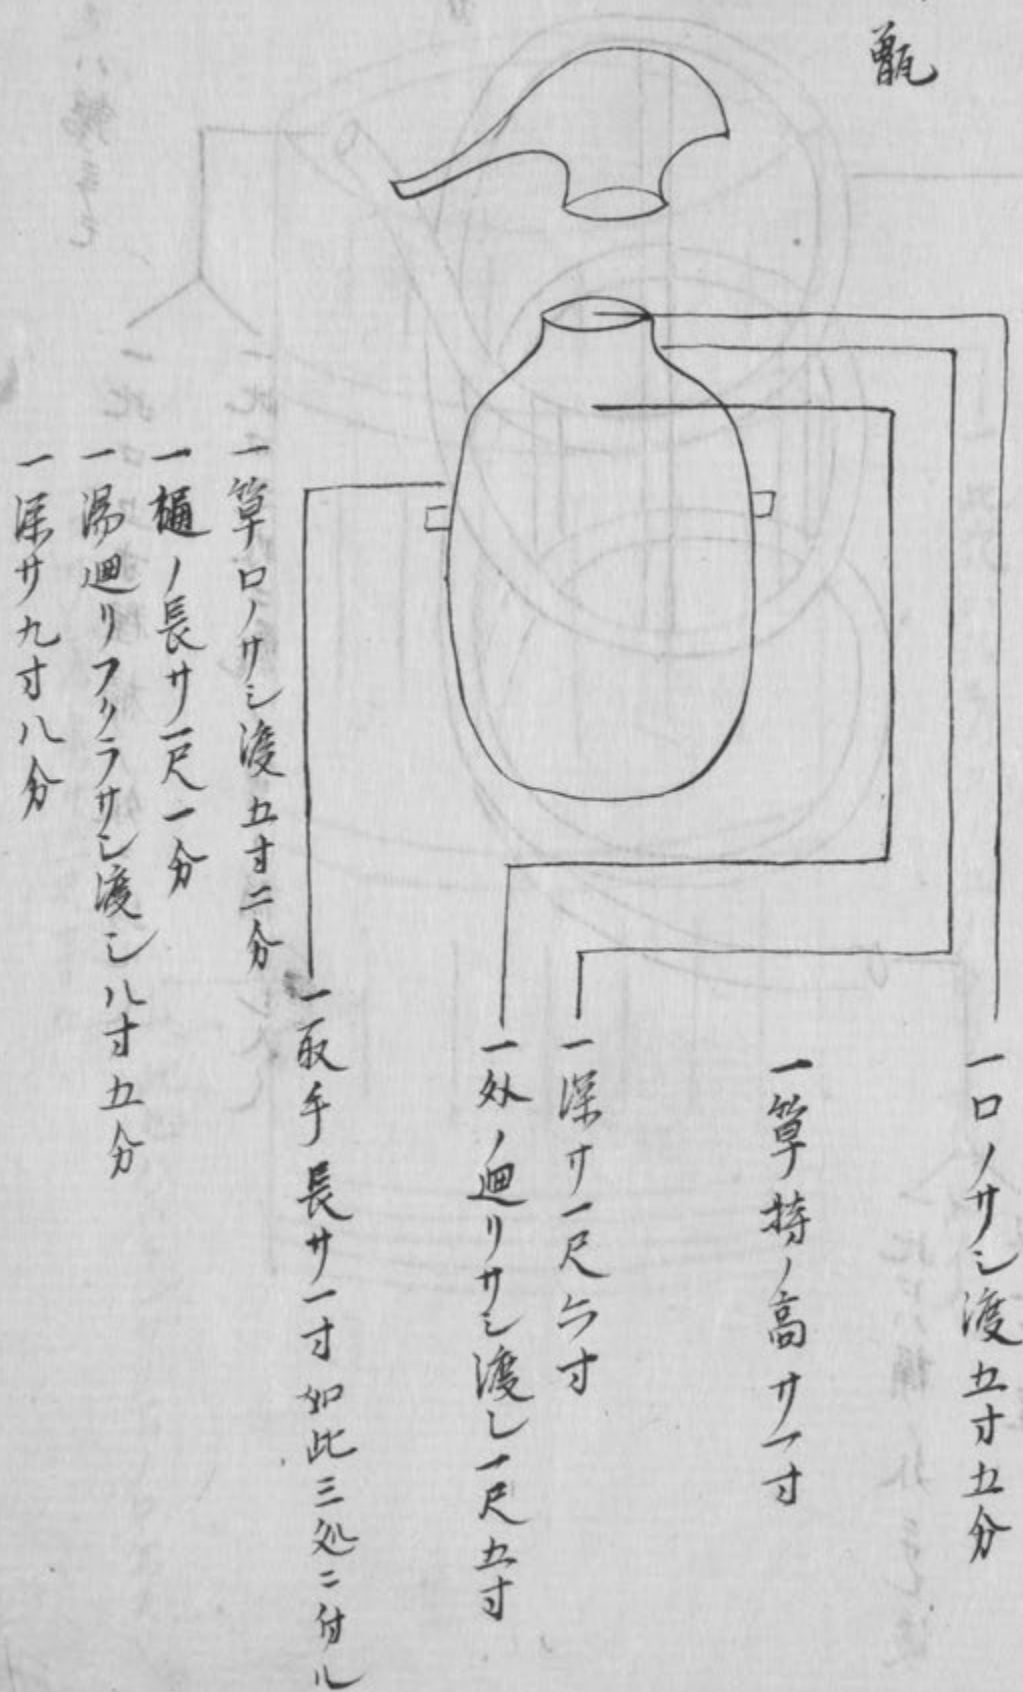 甑
一口ノサシ渡五寸五分
一箪持ノ高サ一寸
一深サ一尺六寸
一外ノ廻リサシ渡し一尺五寸
一取手長サ一寸如此三処ニ付ル
一箪口ノサシ渡五寸二分
一樋ノ長サ一尺一分
一湯廻リフクラサシ渡シ八寸五分
一深サ九寸八分